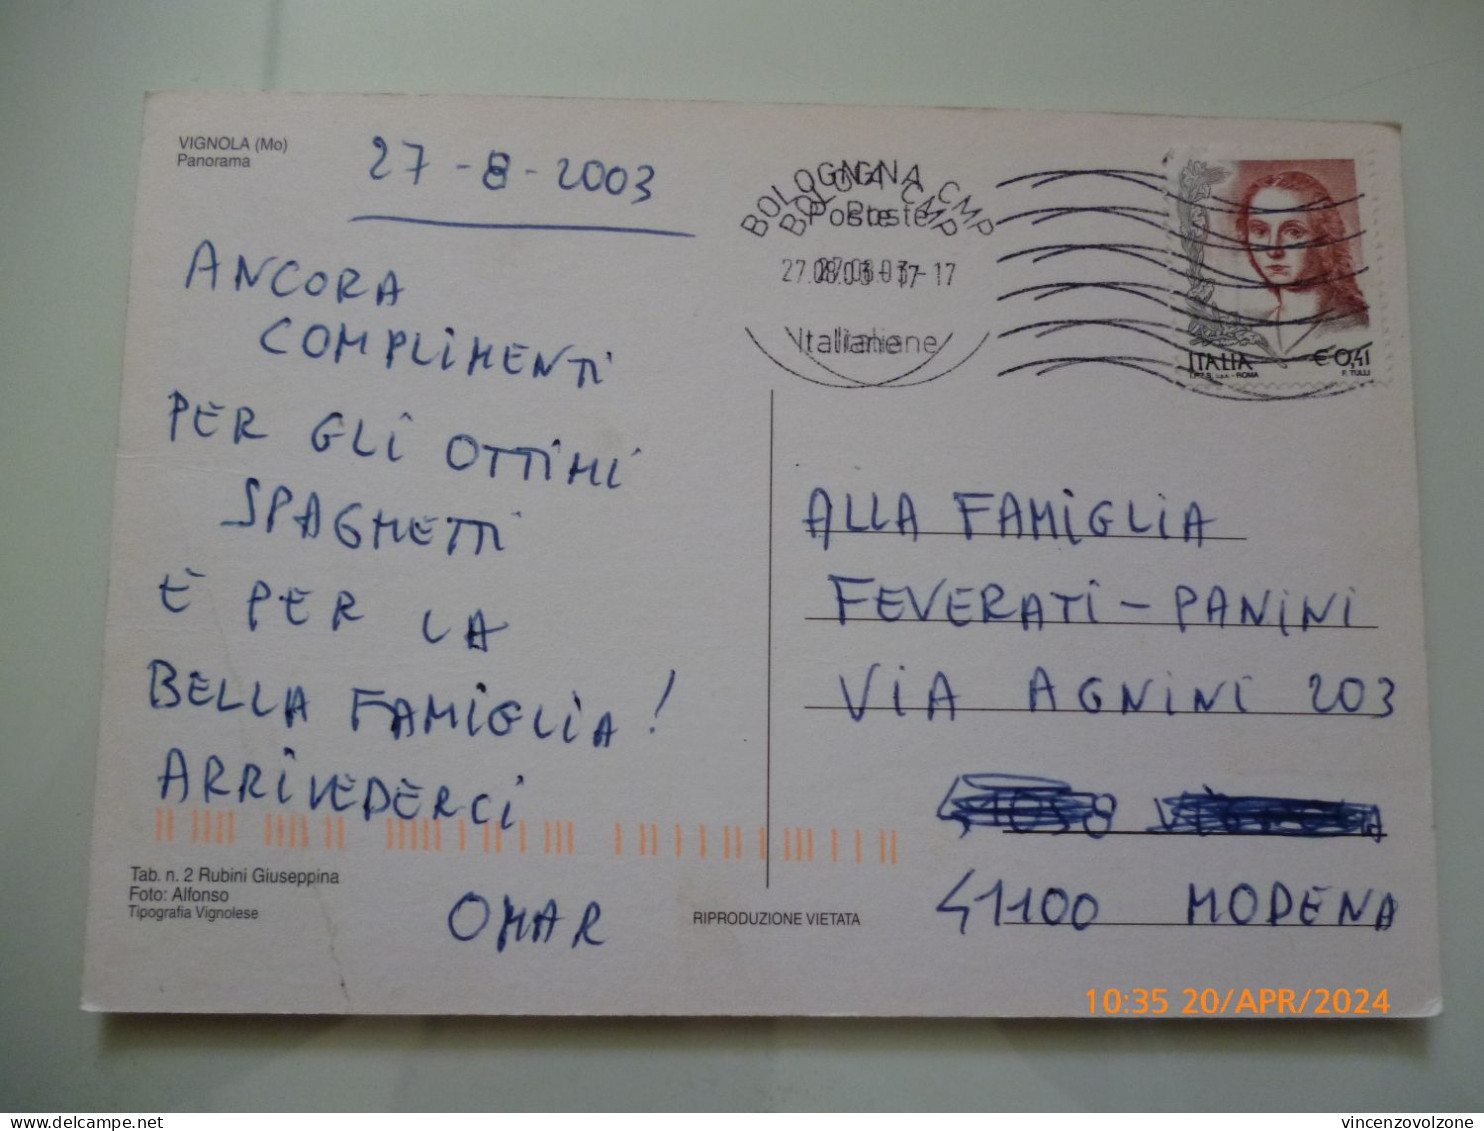 VIGNOLA (Mo)
Panorama
27-8-2003
ANCORA
COMPLIMENTI
PER GLI OTTIMI
SPAGHETTI
E PER LA
BELLA FAMIGLIA!
ARRIVEDERCI
OMAR
Tab. n. 2 Rubini Giuseppina
Foto: Alfonso
Tipografia Vignolese
RIPRODUZIONE VIETATA
BOLOGNA CMP
Poste
27.08.03-17
Italiane
ITALIA € 0,41
I.P.Z.S. S.P.A. - ROMA F. TULLI
ALLA FAMIGLIA
FEVERATI - PANINI
VIA AGNINI 203
41058 VIGNOLA
41100 MODENA
10:35 20/APR/2024
vincenzovolzone